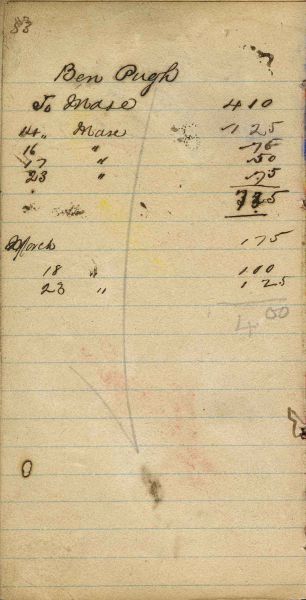 Ben Pugh
To Mase 4 10
14 " Mase 1 25
16 " 75
17 " 50
23 " 75
7 35
March 1 75
18 " 1 00
23 " 1 25
4 00
0